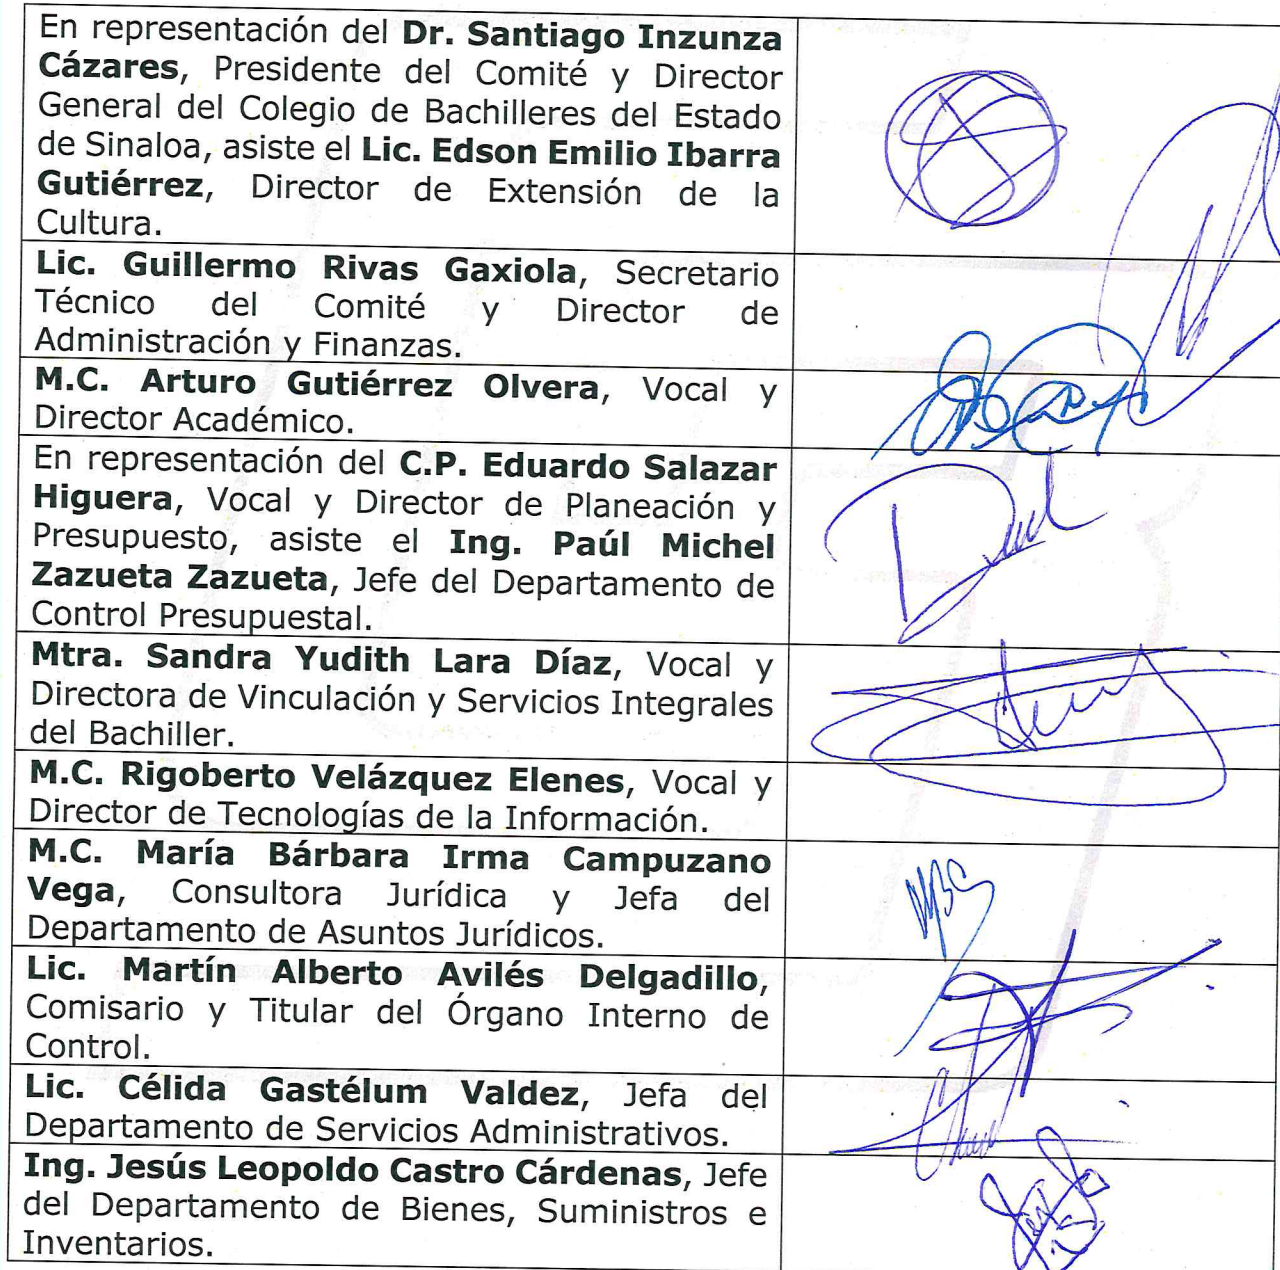 En representación del Dr. Santiago Inzunza
Cázares, Presidente del Comité y Director
General del Colegio de Bachilleres del Estado
de Sinaloa, asiste el Lic. Edson Emilio Ibarra
Gutiérrez, Director de Extensión de la
Cultura.
Lic. Guillermo Rivas Gaxiola, Secretario
Técnico del Comité y Director de
Administración y Finanzas.
M.C. Arturo Gutiérrez Olvera, Vocal y
Director Académico.
En representación del C.P. Eduardo Salazar
Higuera, Vocal y Director de Planeación y
Presupuesto, asiste el Ing. Paúl Michel
Zazueta Zazueta, Jefe del Departamento de
Control Presupuestal.
Mtra. Sandra Yudith Lara Díaz, Vocal y
Directora de Vinculación y Servicios Integrales
del Bachiller.
M.C. Rigoberto Velázquez Elenes, Vocal y
Director de Tecnologías de la Información.
M.C. María Bárbara Irma Campuzano
Vega, Consultora Jurídica y Jefa del
Departamento de Asuntos Jurídicos.
Lic. Martín Alberto Avilés Delgadillo,
Comisario y Titular del Órgano Interno de
Control.
Lic. Célida Gastélum Valdez, Jefa del
Departamento de Servicios Administrativos.
Ing. Jesús Leopoldo Castro Cárdenas, Jefe
del Departamento de Bienes, Suministros e
Inventarios.